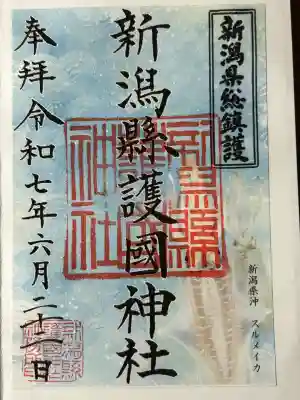 新潟県総鎮護
新潟縣護國神社
奉拝令和七年六月二十一日
新潟県沖 スルメイカ
新潟縣護國神社